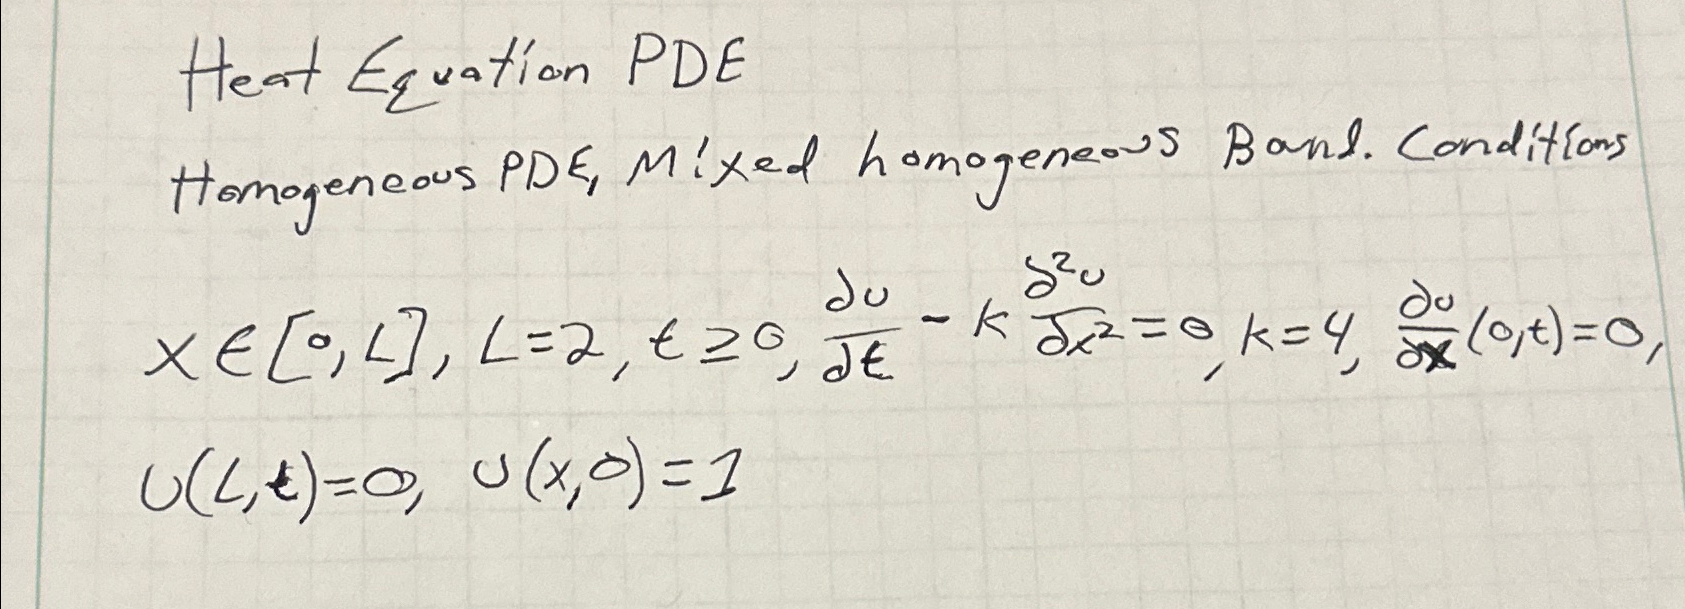 Heat Equation PDE
Homogeneous PDE, Mixed homogeneous Bound. Conditions
x ∈ [0, L], L = 2, t ≥ 0, ∂u/∂t - k ∂²u/∂x² = 0, k = 4, ∂u/∂x (0,t) = 0,
u(L,t) = 0, u(x,0) = 1